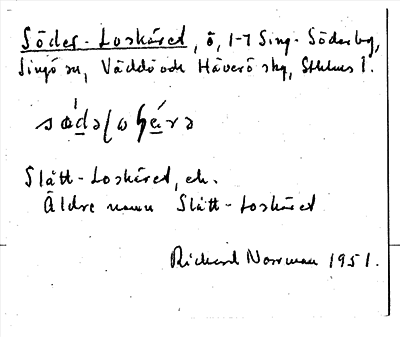 Söder-Loskäret, ö, 1-7 Singö-Söderby,
Singö sn, Väddö och Häverö skg, Sthlms l.
Slått-Loskäret, ek.
Äldre namn Slått-Loskäret
Richard Norrman 1951.